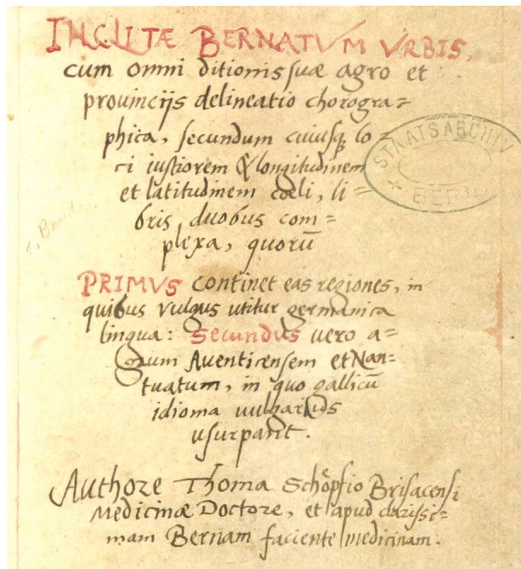 INCLITÆ BERNATVM VRBIS,
cum omni ditionis suæ agro et
provincijs delineatio chorogra=
phica, secundum cuiusq; lo=
ci iustiorem & longitudinem
et latitudinem coeli, li=
bris duobus com=
plexa, quorū
PRIMVS continet eas regiones, in
quibus vulgus utitur germanica
lingua: Secundus vero a=
grum Aventicensem et Nan=
tuatum, in quo gallicū
idioma vulgarius
usurpant.
Authore Thoma Schöpfio Brisacensi
Medicinæ Doctore, et apud clarissi=
mam Bernam faciente medicinam.
STAATSARCHIV
BERN